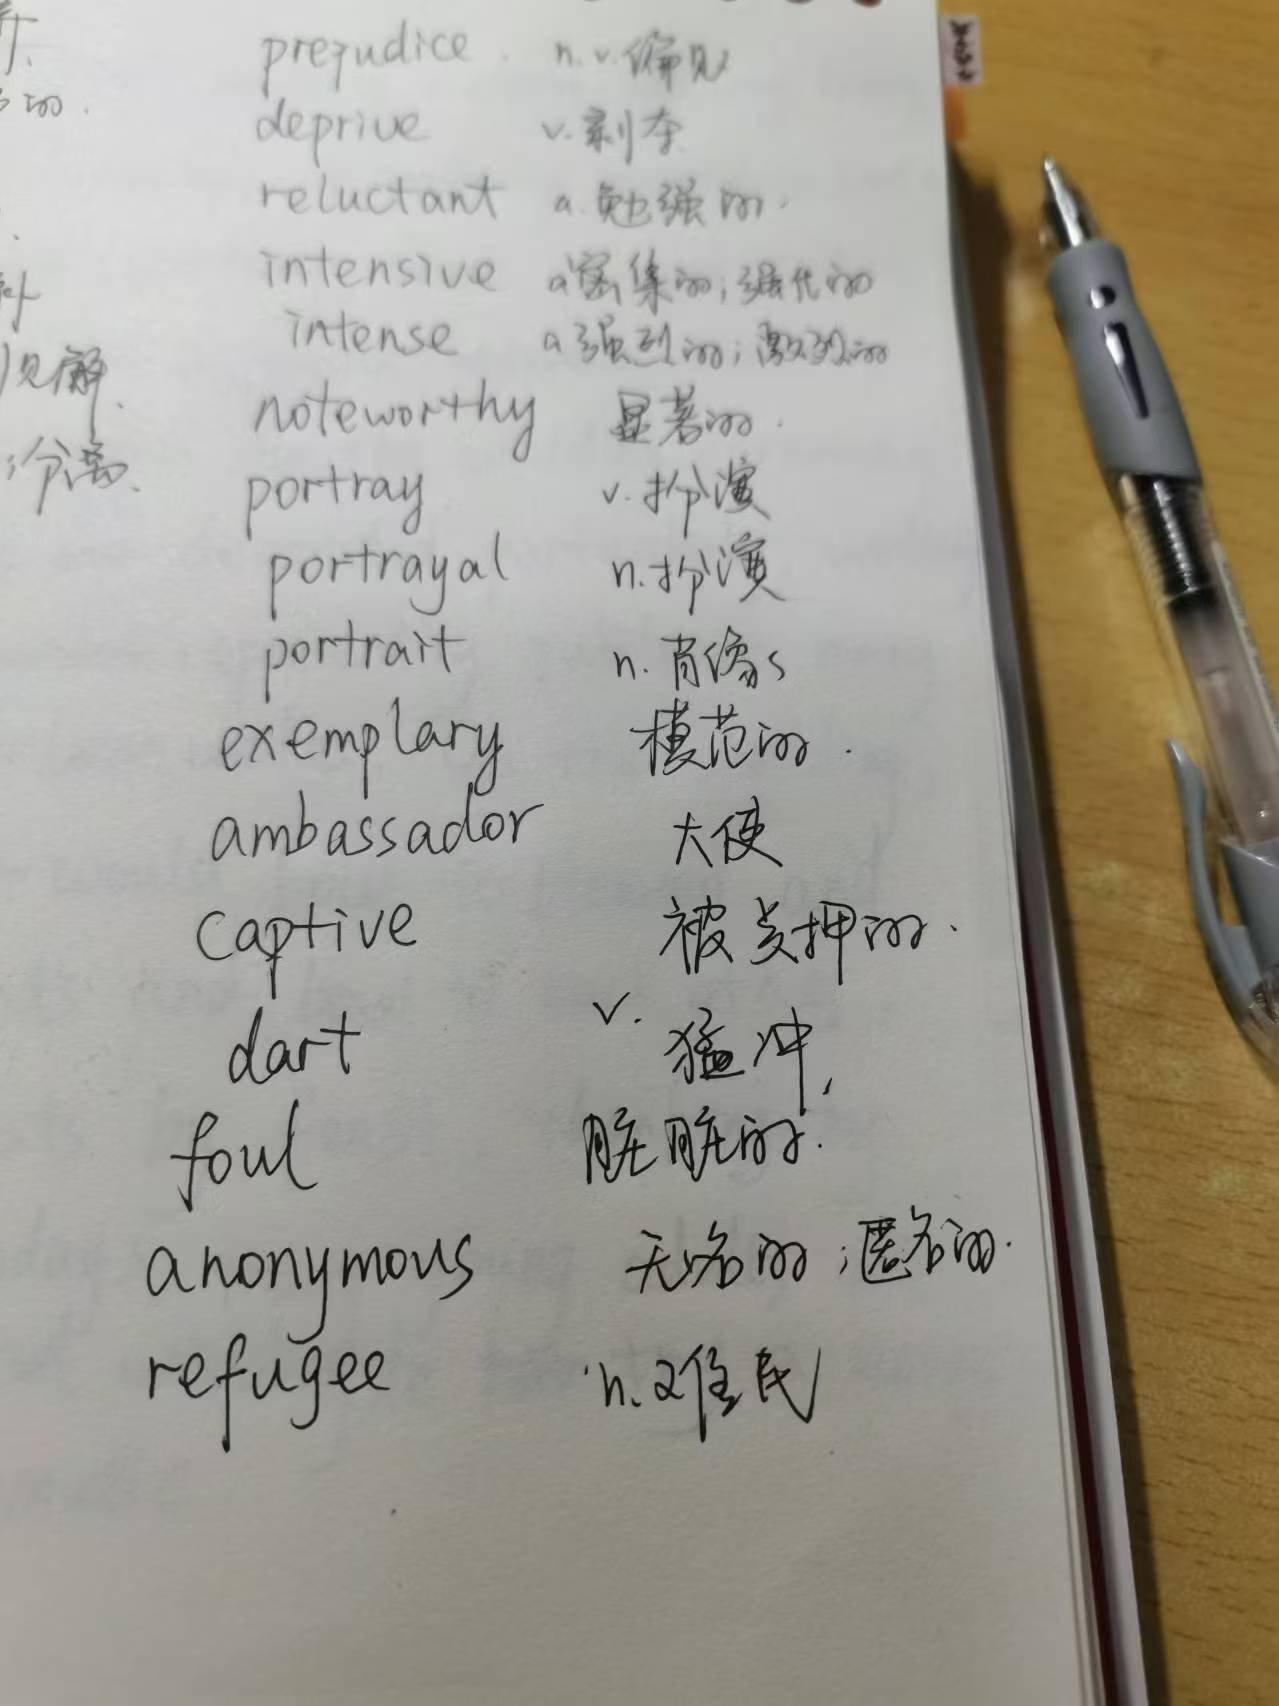 prejudice. n. v. 偏见
deprive v. 剥夺
reluctant a. 勉强的.
intensive a 密集的; 强化的
intense a 强烈的; 激烈的
noteworthy 显著的.
portray v. 扮演
portrayal n. 扮演
portrait n. 肖像
exemplary 模范的.
ambassador 大使
captive 被关押的.
dart v. 猛冲,
foul 脏脏的.
anonymous 无名的; 匿名的.
refugee n. 住民
见解.
;分离.